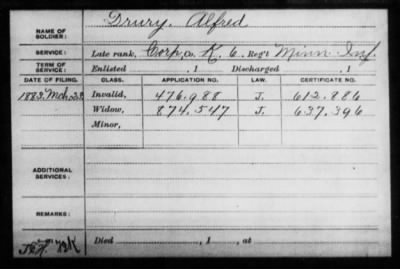 Drury, Alfred
NAME OF SOLDIER:
SERVICE: Late rank, Corp, Co. K, 6 Reg't Minn Inf.
TERM OF SERVICE: Enlisted , 1 Discharged , 1
DATE OF FILING. CLASS. APPLICATION NO. LAW. CERTIFICATE NO.
1883, Mch, 23 Invalid, 476.988 J. 612.886
Widow, 874.547 J. 637.396
Minor,
ADDITIONAL SERVICES:
REMARKS:
Died , 1 , at